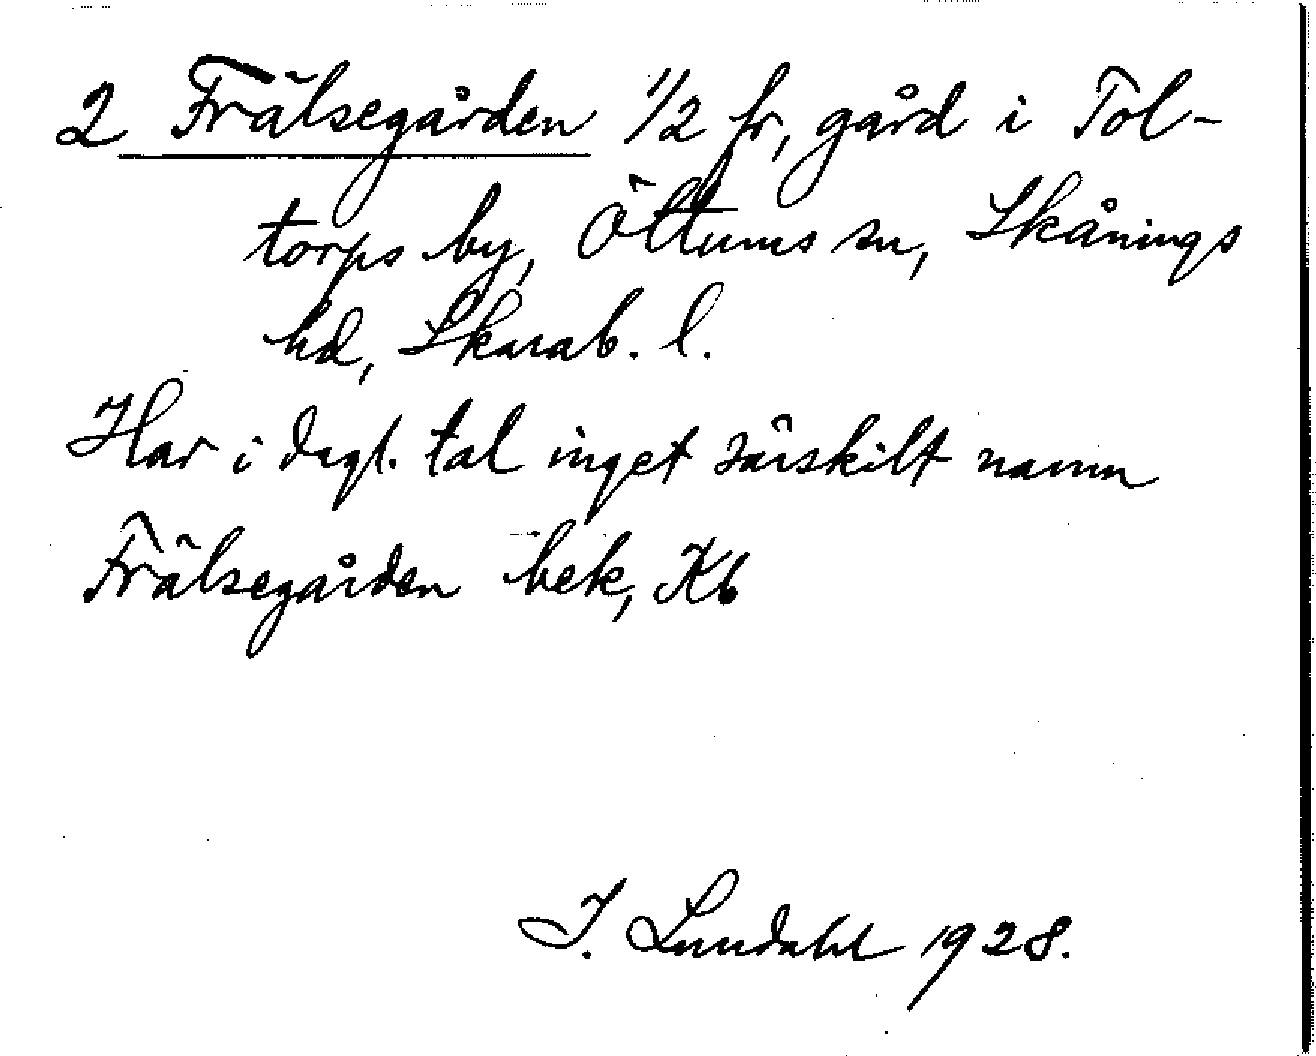 2 Frälsegården 1/2 fr, gård i Tol-
torps by, Öttums sn, Skånings
hd, Skarab. l.
Har i dagl. tal inget särskilt namn
Frälsegården bek, Kb
I. Lundahl 1928.